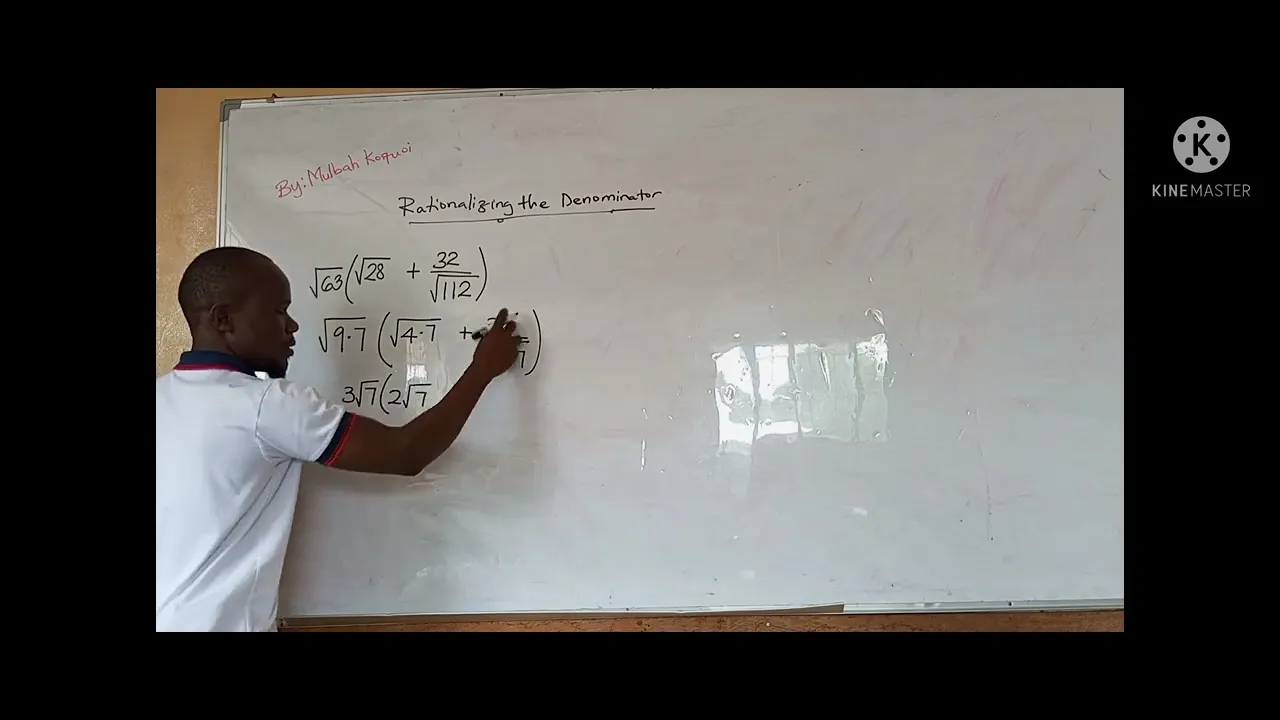 By: Mulbah Koquoi
Rationalizing the Denominator
√63(√28 + 32/√112)
√9·7 (√4·7 + 7)
3√7(2√7
K
KINEMASTER